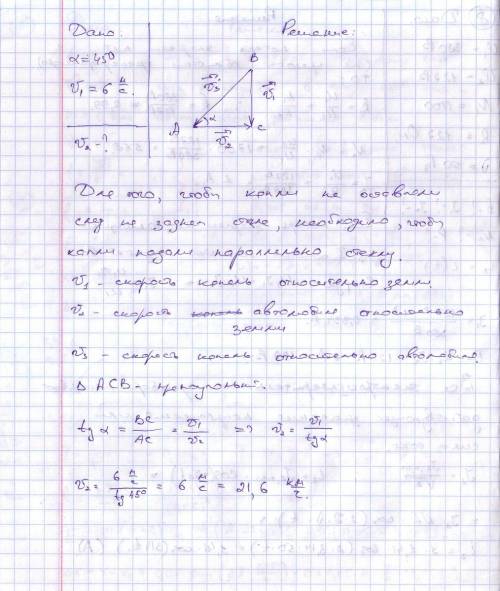 Дано: Решение:
α = 45°
v₁ = 6 м/с.
v₂ - ?
B
v₃ v₁
A α C
v₂
Для того, чтобы капли не оставляли
след на заднем стекле, необходимо, чтобы
капли падали параллельно стеклу.
v₁ - скорость капель относительно земли.
v₂ - скорость автомобиля относительно
земли
v₃ - скорость капель относительно автомобиля.
Δ ACB - прямоугольный.
tg α = BC/AC = v₁/v₂ => v₂ = v₁/tg α
v₂ = 6 м/с / tg 45° = 6 м/с = 21,6 км/ч.